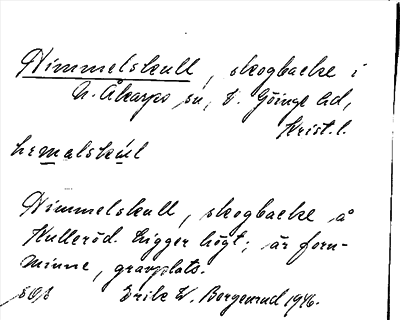 Himmelskull, skogbacke i
N. Åkarps sn, V. Göinge hd,
Krist. l.
Himmelskull, skogbacke å
Kulleröd. Ligger högt; är forn-
minne, gravplats.
Erik W. Bergenrud 1946.